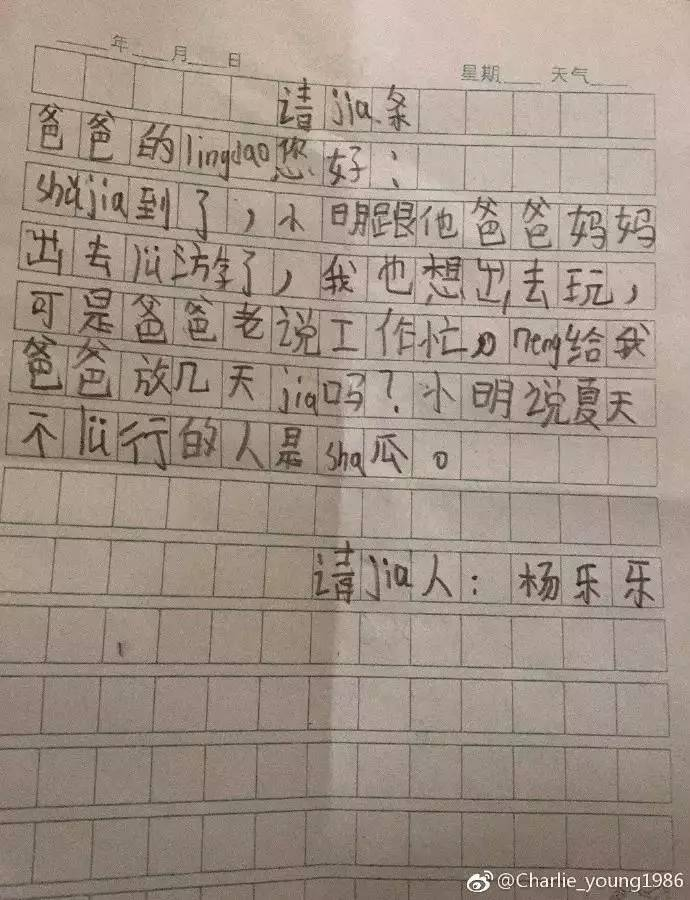 年 月 日 星期 天气
请jia条
爸爸的lingdao您好:
shǔjia到了,小明跟他爸爸妈妈
出去lü游了,我也想出去玩,
可是爸爸老说工作忙。neng给我
爸爸放几天jia吗?小明说夏天
不lü行的人是sha瓜。
请jia人:杨乐乐
@Charlie_young1986